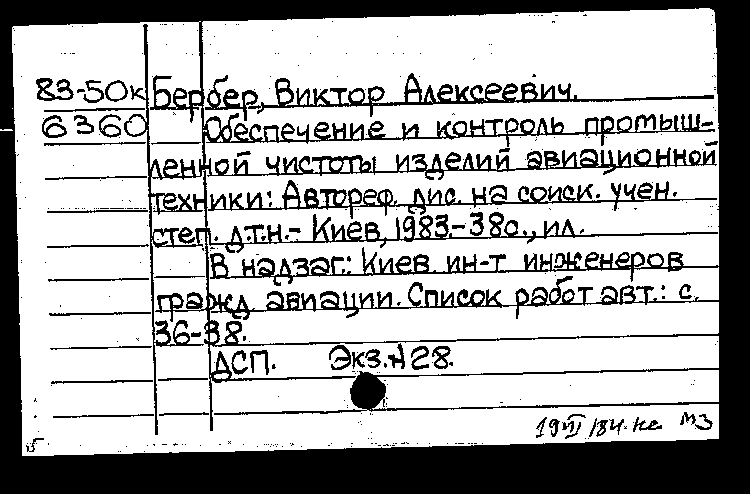 83-50к Бербер, Виктор Алексеевич.
6360 Обеспечение и контроль промыш-
ленной чистоты изделий авиационной
техники: Автореф. дис. на соиск. учен.
степ. д.т.н.- Киев, 1983.-38с., ил.
В надзаг.: Киев. ин-т инженеров
гражд. авиации. Список работ авт.: с.
36-38.
ДСП. Экз.№28.
19 VI /84. МЗ